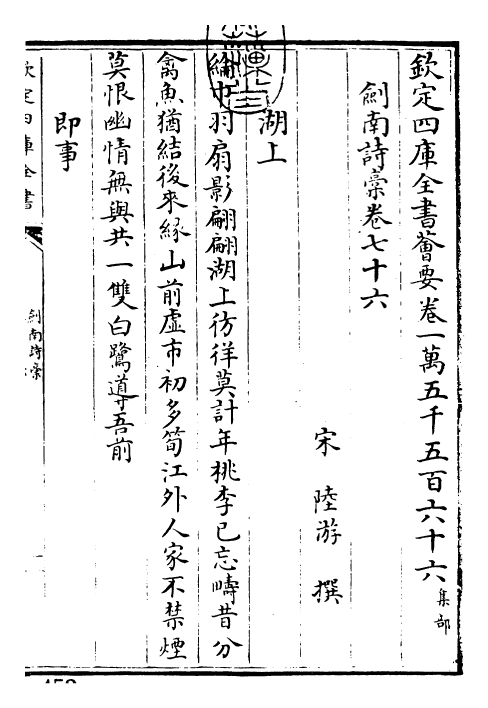 欽定四庫全書薈要卷一萬五千五百六十六 集部
劍南詩稾卷七十六
宋 陸游 撰
湖上
綸巾羽扇影翩翩湖上彷徉莫計年桃李已忘疇昔分
禽魚猶結後來緣山前虛市初多筍江外人家不禁煙
莫恨幽情無與共一雙白鷺導吾前
即事
欽定四庫全書
劍南詩稾